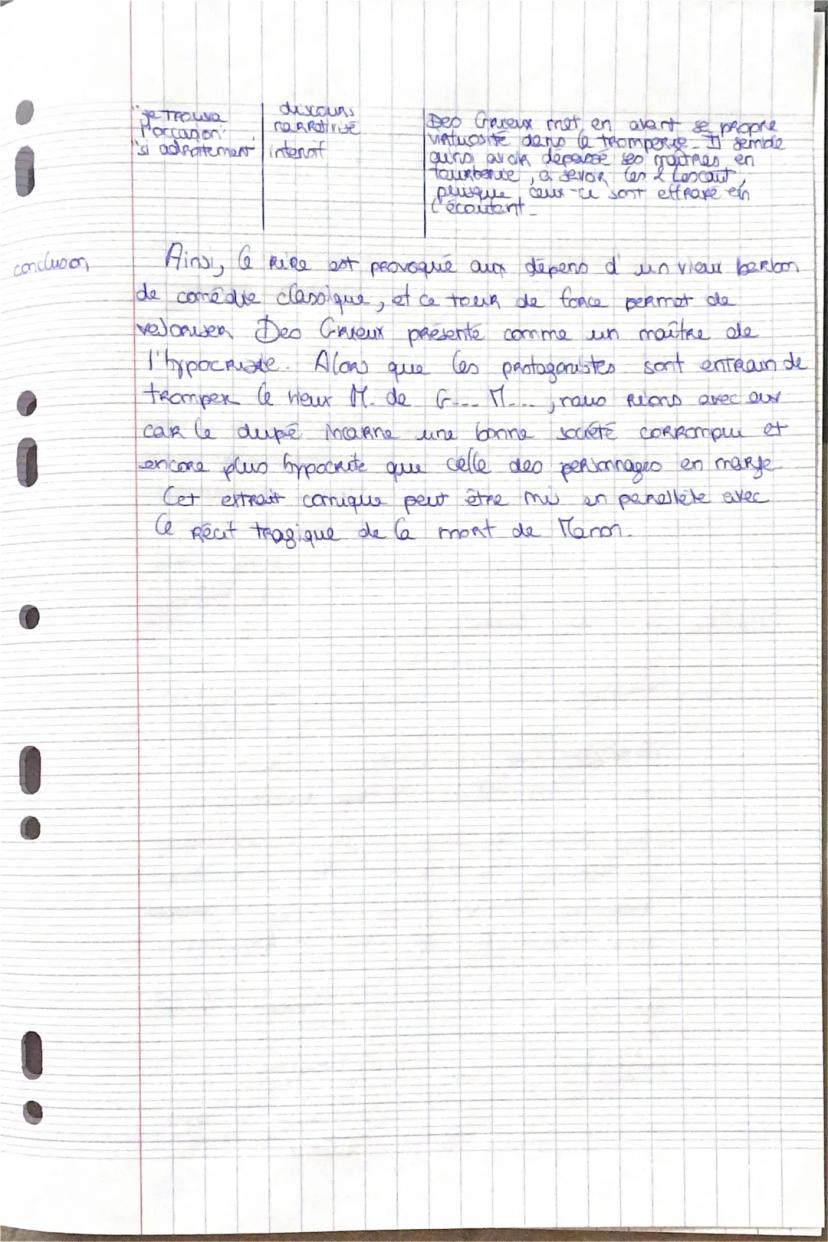 "je trouva
l'occasion"
"si adroitement
discours
narrativisé
intensif
Des Grieux met en avant sa propre
virtuosité dans la tromperie. Il semble
avoir dépassé ses maîtres en
fourberie, à savoir les 2 Lescaut,
puisque ceux-ci sont effrayé en
l'écoutant.
conclusion
Ainsi, le rire est provoqué aux dépend d'un vieux barbon
de comédie classique, et ce tour de force permet de
valoriser Des Grieux présenté comme un maître de
l'hypocrisie. Alors que les protagonistes sont entrain de
tromper le vieux M. de G... M..., nous rions avec eux
car le dupé incarne une bonne société corrompu et
encore plus hypocrite que celle des personnages en marge
Cet extrait comique peut être mis en parallèle avec
le récit tragique de la mort de Manon.